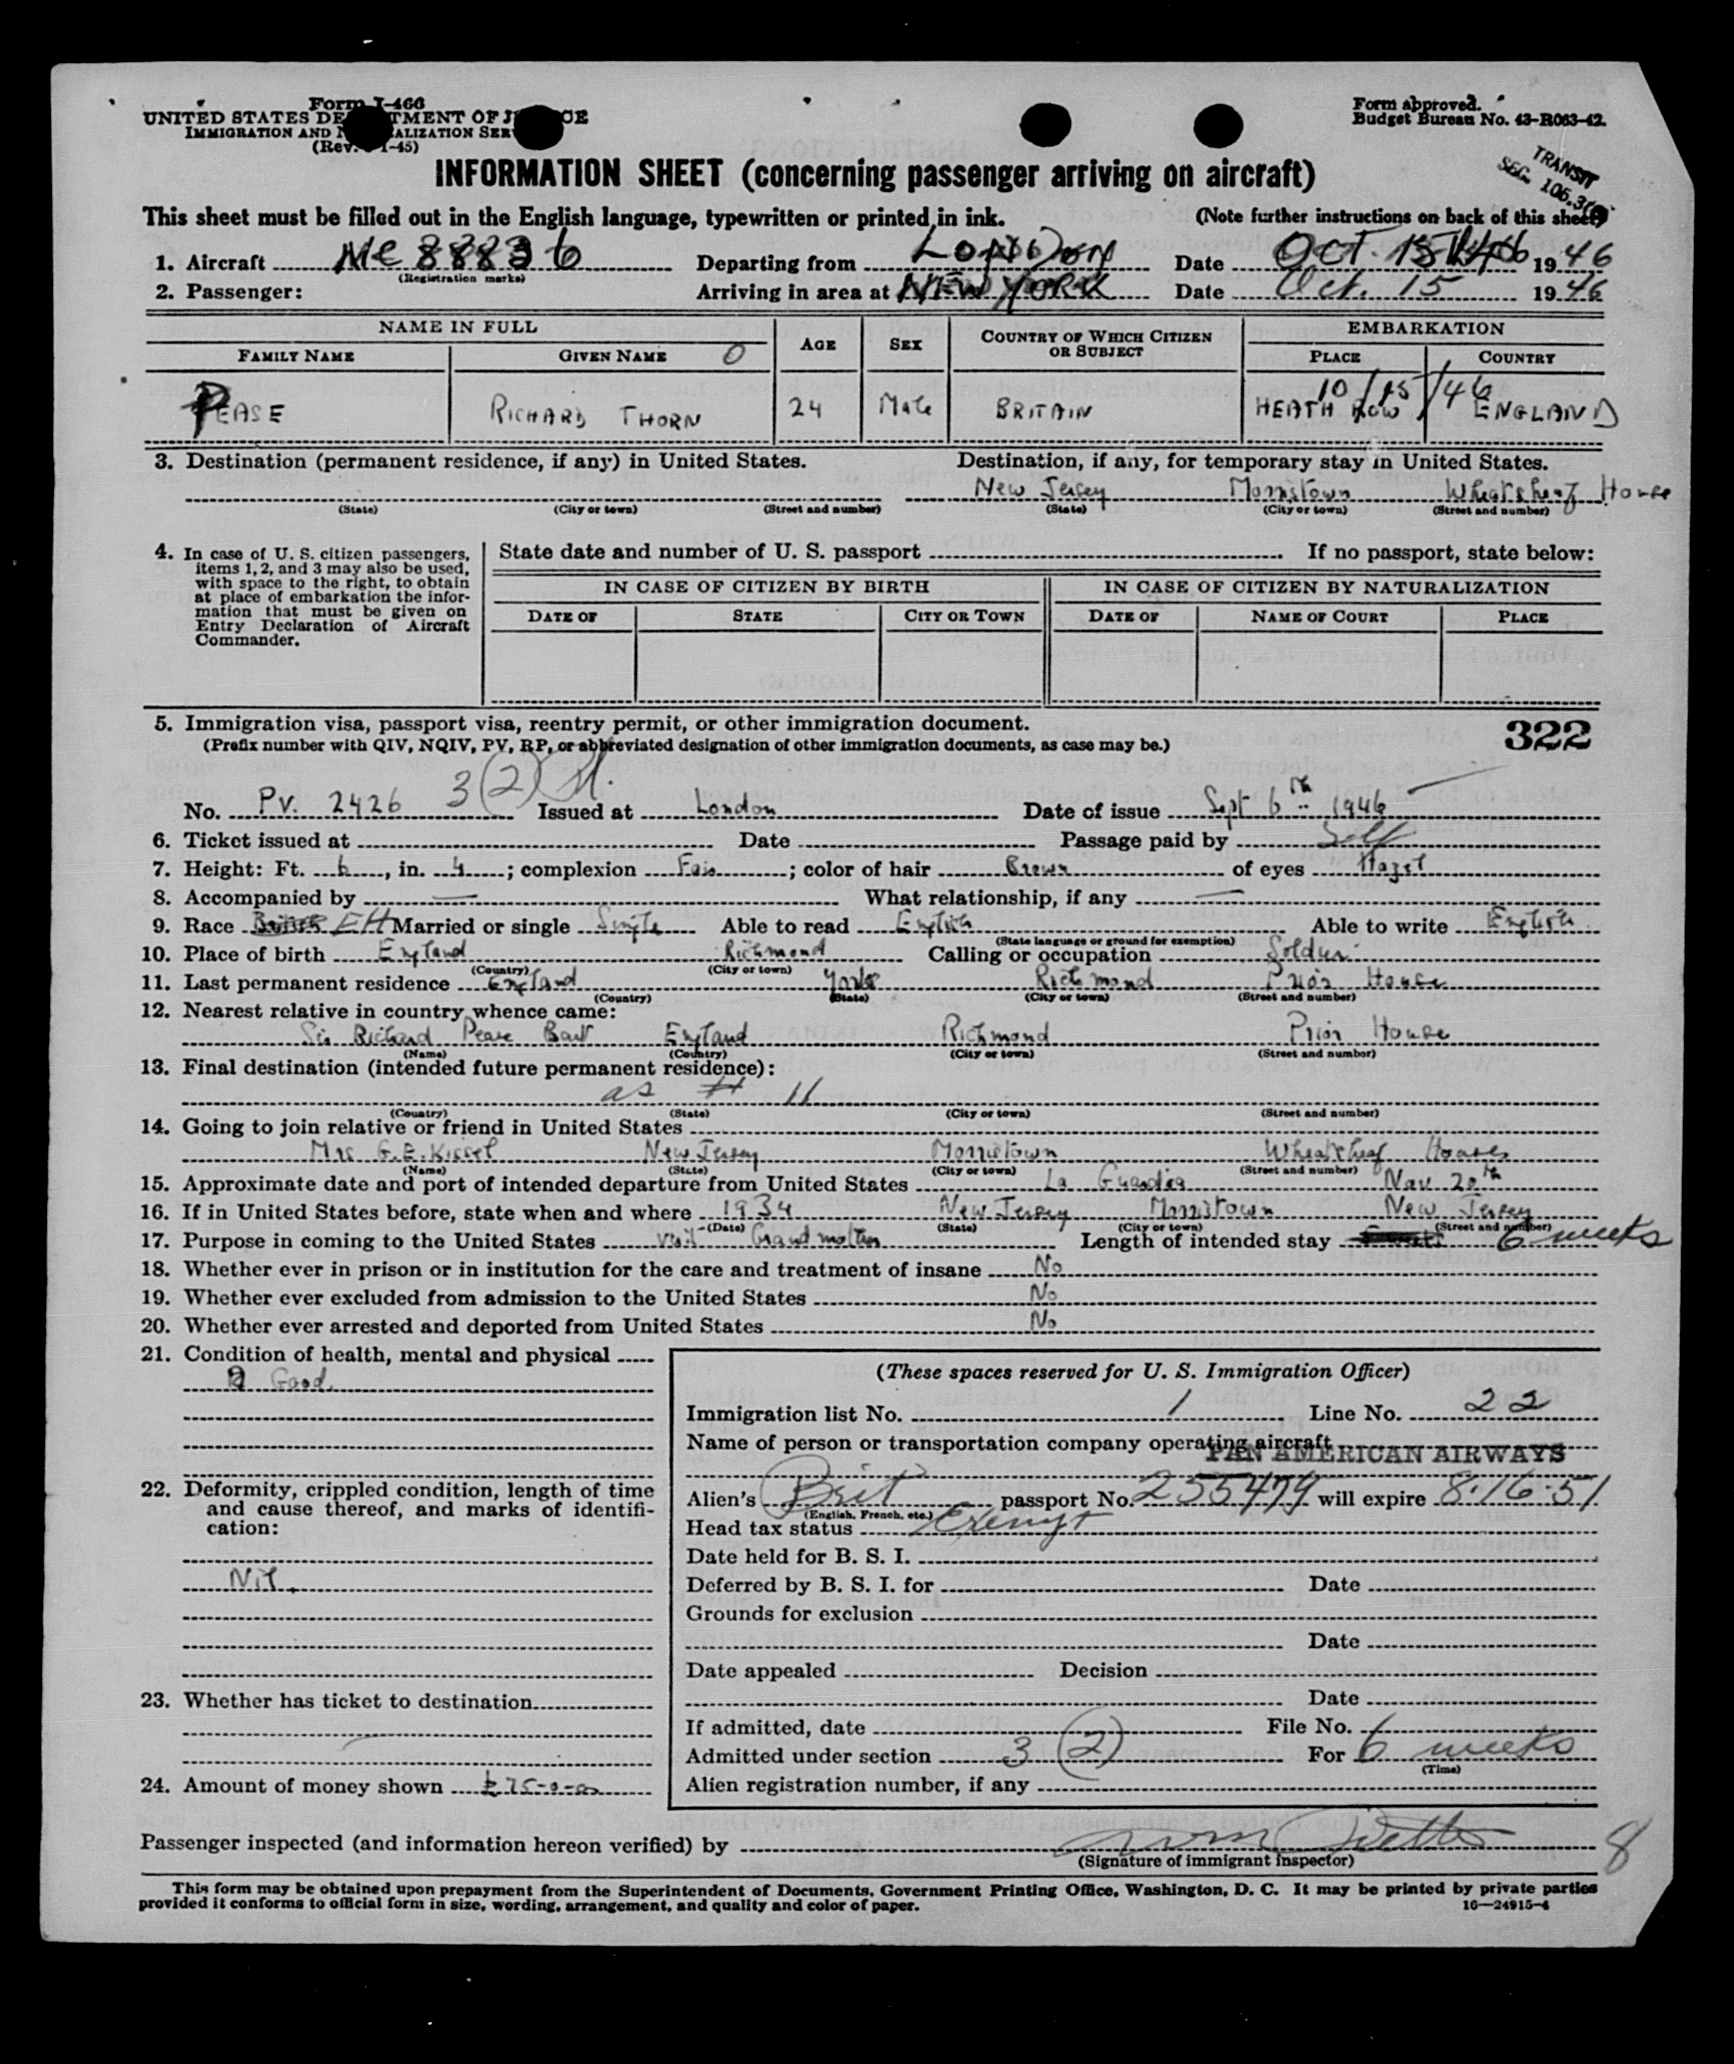 Form I-466
UNITED STATES DEPARTMENT OF JUSTICE
IMMIGRATION AND NATURALIZATION SER
(Rev. 1-45)
Form approved.
Budget Bureau No. 43-R063-42.
INFORMATION SHEET (concerning passenger arriving on aircraft)
TRANSIT
SEC. 105.3
This sheet must be filled out in the English language, typewritten or printed in ink. (Note further instructions on back of this sheet)
1. Aircraft (Registration marks) Departing from London Date Oct. 1946
2. Passenger: Arriving in area at NEW YORK Date Oct. 15 1946
NAME IN FULL AGE SEX COUNTRY OF WHICH CITIZEN OR SUBJECT EMBARKATION
FAMILY NAME GIVEN NAME O PLACE COUNTRY
10/15/46
PEASE RICHARD THORN 24 Male BRITAIN HEATH ROW ENGLAND
3. Destination (permanent residence, if any) in United States. Destination, if any, for temporary stay in United States.
New Jersey Morristown Wheatsheaf House
(State) (City or town) (Street and number) (State) (City or town) (Street and number)
4. In case of U. S. citizen passengers, items 1, 2, and 3 may also be used, with space to the right, to obtain at place of embarkation the information that must be given on Entry Declaration of Aircraft Commander.
State date and number of U. S. passport If no passport, state below:
IN CASE OF CITIZEN BY BIRTH IN CASE OF CITIZEN BY NATURALIZATION
DATE OF STATE CITY OR TOWN DATE OF NAME OF COURT PLACE
5. Immigration visa, passport visa, reentry permit, or other immigration document. 322
(Prefix number with QIV, NQIV, PV, RP, or abbreviated designation of other immigration documents, as case may be.)
No. PV. 2426 3(2) Issued at London Date of issue Sept 6th 1946
6. Ticket issued at Date Passage paid by Self
7. Height: Ft. 6, in. 4; complexion Fair; color of hair Brown of eyes Hazel
8. Accompanied by — What relationship, if any —
9. Race EH Married or single Single Able to read English Able to write English
(State language or ground for exemption)
10. Place of birth England Richmond Calling or occupation Soldier
(Country) (City or town)
11. Last permanent residence England Yorks Richmond Prior House
(Country) (State) (City or town) (Street and number)
12. Nearest relative in country whence came:
Sir Richard Pease Bart England Richmond Prior House
(Name) (Country) (City or town) (Street and number)
13. Final destination (intended future permanent residence):
as # 11
(Country) (State) (City or town) (Street and number)
14. Going to join relative or friend in United States
Mrs G.E. Kissel New Jersey Morristown Wheatsheaf House
(Name) (State) (City or town) (Street and number)
15. Approximate date and port of intended departure from United States La Guardia Nov 20th
16. If in United States before, state when and where 1934 New Jersey Morristown New Jersey
(Date) (State) (City or town) (Street and number)
17. Purpose in coming to the United States visit Grandmother Length of intended stay 6 weeks
18. Whether ever in prison or in institution for the care and treatment of insane No
19. Whether ever excluded from admission to the United States No
20. Whether ever arrested and deported from United States No
21. Condition of health, mental and physical
Good.
22. Deformity, crippled condition, length of time and cause thereof, and marks of identification:
Nil.
23. Whether has ticket to destination
24. Amount of money shown £75-0-0
(These spaces reserved for U. S. Immigration Officer)
Immigration list No. 1 Line No. 22
Name of person or transportation company operating aircraft
PAN AMERICAN AIRWAYS
Alien's Brit passport No. 255479 will expire 8-16-51
(English, French, etc.)
Head tax status Exempt
Date held for B. S. I.
Deferred by B. S. I. for Date
Grounds for exclusion
Date
Date appealed Decision
Date
If admitted, date File No.
Admitted under section 3 (2) For 6 weeks
(Time)
Alien registration number, if any
Passenger inspected (and information hereon verified) by
(Signature of immigrant inspector)
8
This form may be obtained upon prepayment from the Superintendent of Documents, Government Printing Office, Washington, D. C. It may be printed by private parties
provided it conforms to official form in size, wording, arrangement, and quality and color of paper. 16—24915-4